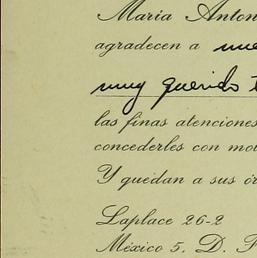 Maria Anton
agradecen a nue
muy querido t
las finas atenciones
concederles con mo
Y quedan a sus ór
Laplace 26-2
México 5, D. F